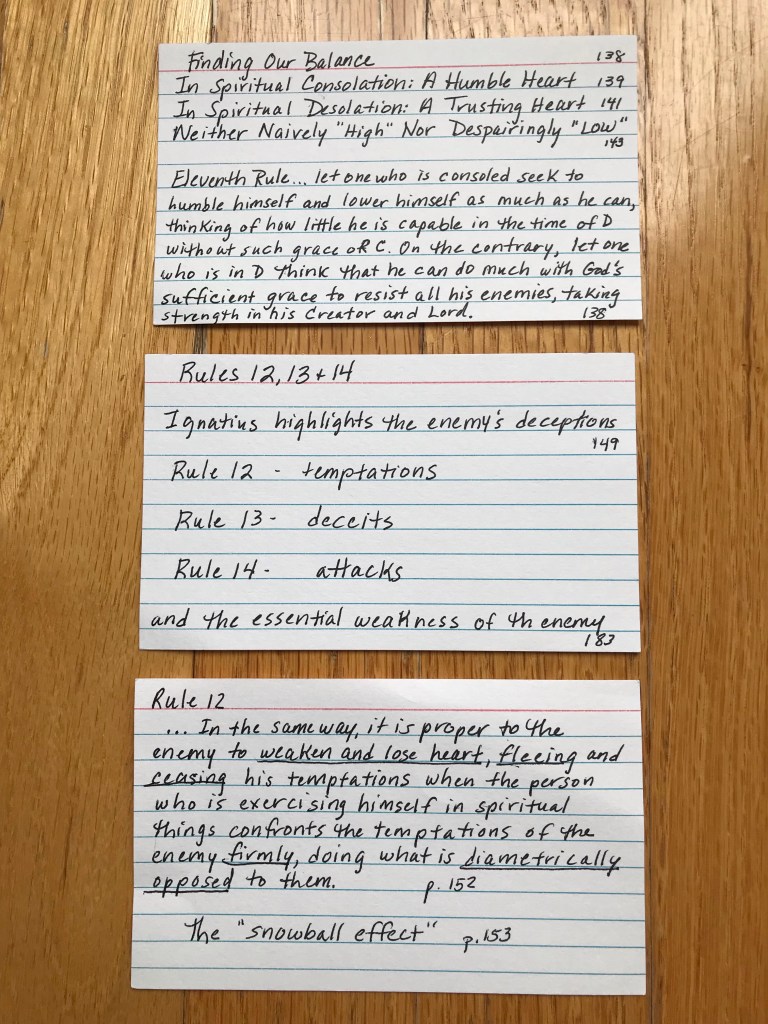 Finding Our Balance 138
In Spiritual Consolation: A Humble Heart 139
In Spiritual Desolation: A Trusting Heart 141
Neither Naively "High" Nor Despairingly "Low"
143
Eleventh Rule... let one who is consoled seek to
humble himself and lower himself as much as he can,
thinking of how little he is capable in the time of D
without such grace or C. On the contrary, let one
who is in D think that he can do much with God's
sufficient grace to resist all his enemies, taking
strength in his Creator and Lord. 138
Rules 12, 13 + 14
Ignatius highlights the enemy's deceptions
149
Rule 12 - temptations
Rule 13 - deceits
Rule 14 - attacks
and the essential weakness of th enemy
183
Rule 12
... In the same way, it is proper to the
enemy to weaken and lose heart, fleeing and
ceasing his temptations when the person
who is exercising himself in spiritual
things confronts the temptations of the
enemy firmly, doing what is diametrically
opposed to them. p. 152
The "snowball effect" p. 153